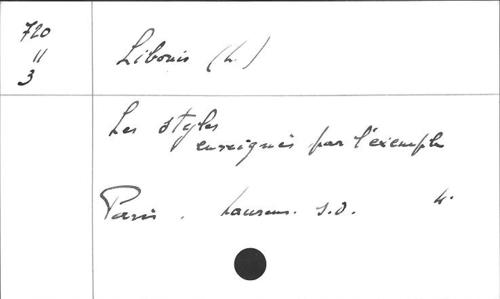 720
11
3
Libonis (L.)
Les styles
enseignés par l'exemple
Paris. Laurens. S.D. 4.